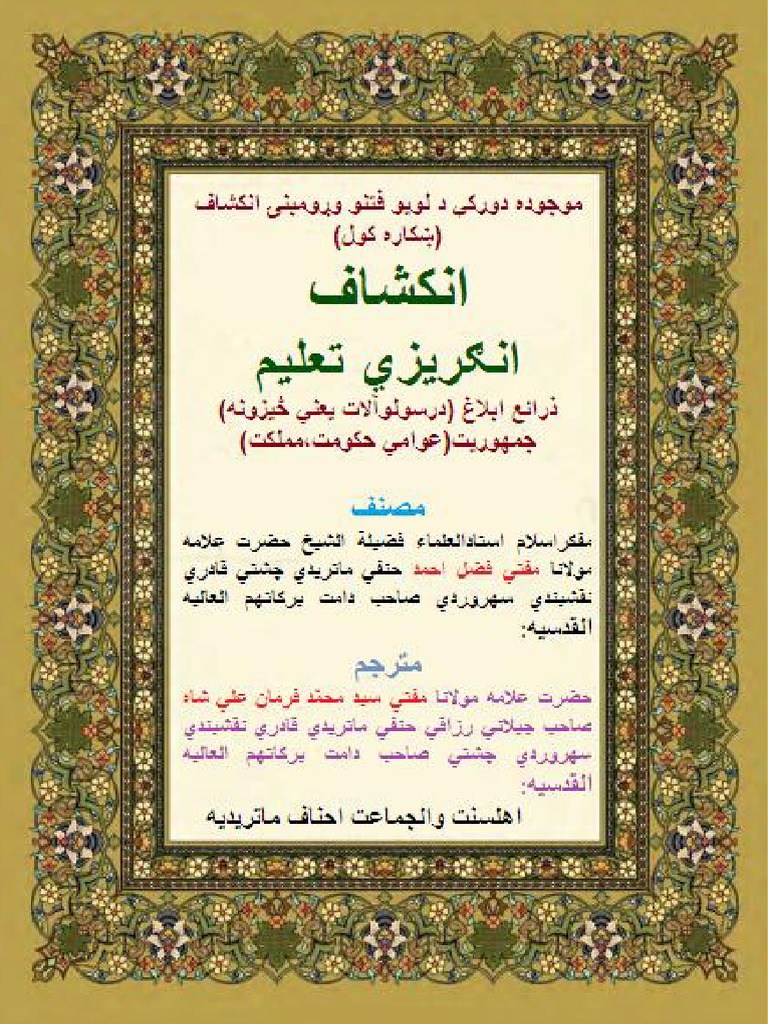 موجوده دوركي د لويو فتنو وړومبنۍ انكشاف
(ښكاره كول)
انكشاف
انګريزي تعليم
ذرائع ابلاغ (درسولوآلات يعني څيزونه)
جمهوريت(عوامي حكومت،مملكت)
مصنف
مفكراسلام استادالعلماء فضيلة الشيخ حضرت علامه
مولانا مفتي فضل احمد حنفي ماتريدي چشتي قادري
نقشبندي سهروردي صاحب دامت بركاتهم العاليه
القدسيه:
مترجم
حضرت علامه مولانا مفتي سيد محمد فرمان علي شاه
صاحب جيلاني رزاقي حنفي ماتريدي قادري نقشبندي
سهروردي چشتي صاحب دامت بركاتهم العاليه
القدسيه:
اهلسنت والجماعت احناف ماتريديه